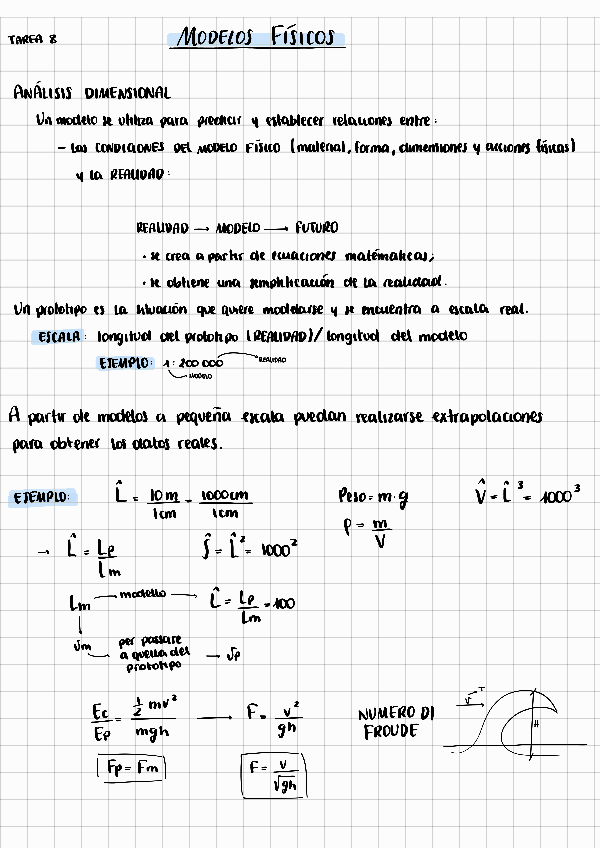 TAREA 8
MODELOS FÍSICOS
ANÁLISIS DIMENSIONAL
Un modelo se utiliza para predecir y establecer relaciones entre:
- Las CONDICIONES DEL MODELO FÍSICO (material, forma, dimensiones y acciones físicas)
y la REALIDAD:
REALIDAD → MODELO → FUTURO
· se crea a partir de ecuaciones matemáticas;
· se obtiene una simplificación de la realidad.
Un prototipo es la situación que quiere modelarse y se encuentra a escala real.
ESCALA: longitud del prototipo (REALIDAD)/longitud del modelo
EJEMPLO: 1:200 000 REALIDAD
MODELO
A partir de modelos a pequeña escala puedan realizarse extrapolaciones
para obtener los datos reales.
EJEMPLO: L̂ = 10m/1cm = 1000cm/1cm Peso = m·g V̂ = L̂³ = 1000³
ρ = m/V
→ L̂ = Lp/Lm Ŝ = L̂² = 1000²
Lm modello → L̂ = Lp/Lm = 100
↓
vm per passare a quella del prototipo → vp
Ec/Ep = ½mv²/mgh → F = v²/gh NUMERO DI FROUDE v H
Fp = Fm F = v/√gh